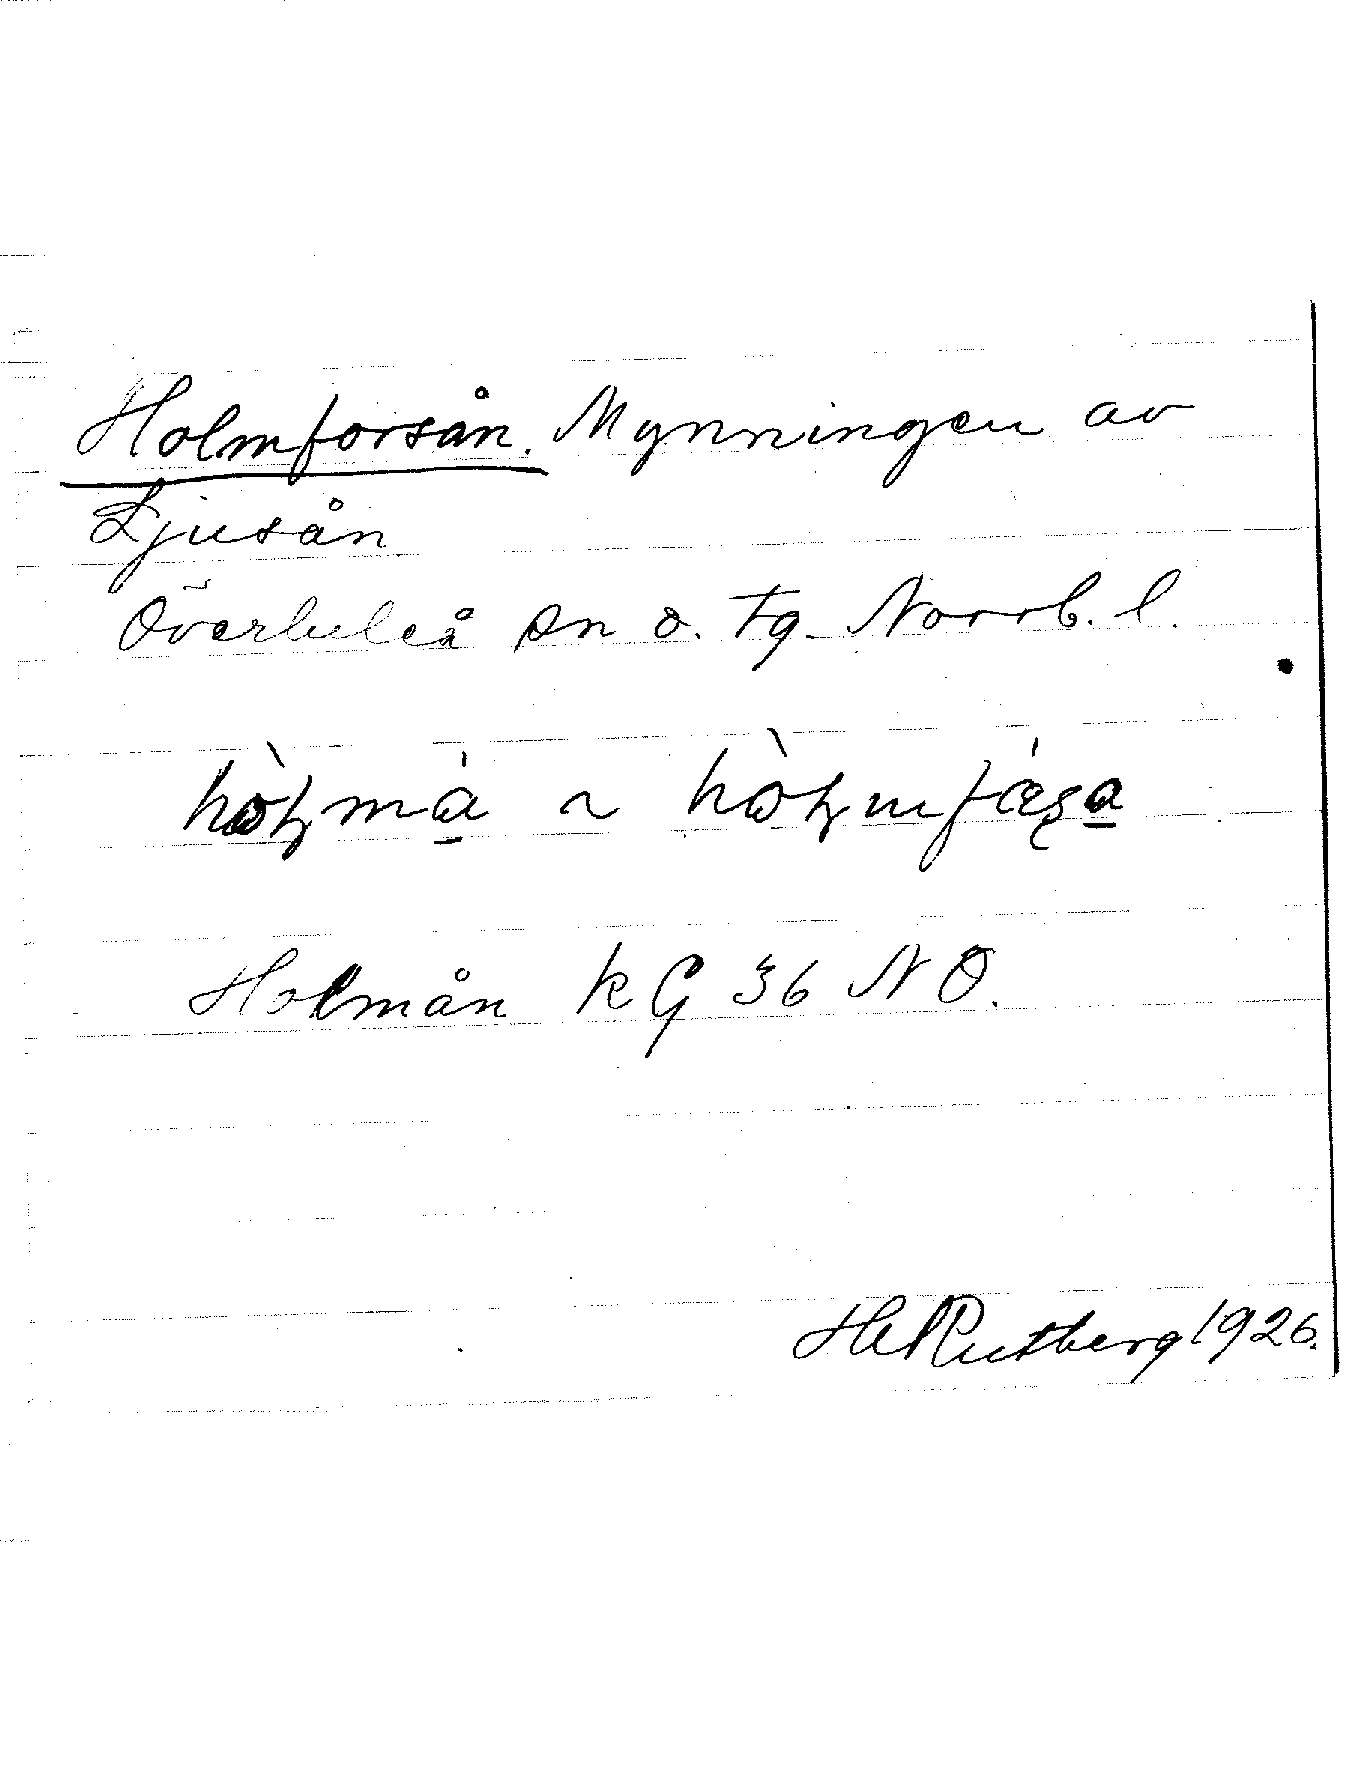 Holmforsån. Mynningen av
Ljusån
Överluleå sn o. tg. Norrb. l.
hòɭmá̱ ~ hòɭmfǽʂa̱
Holmån kG 36 NO.
HARutberg 1926.